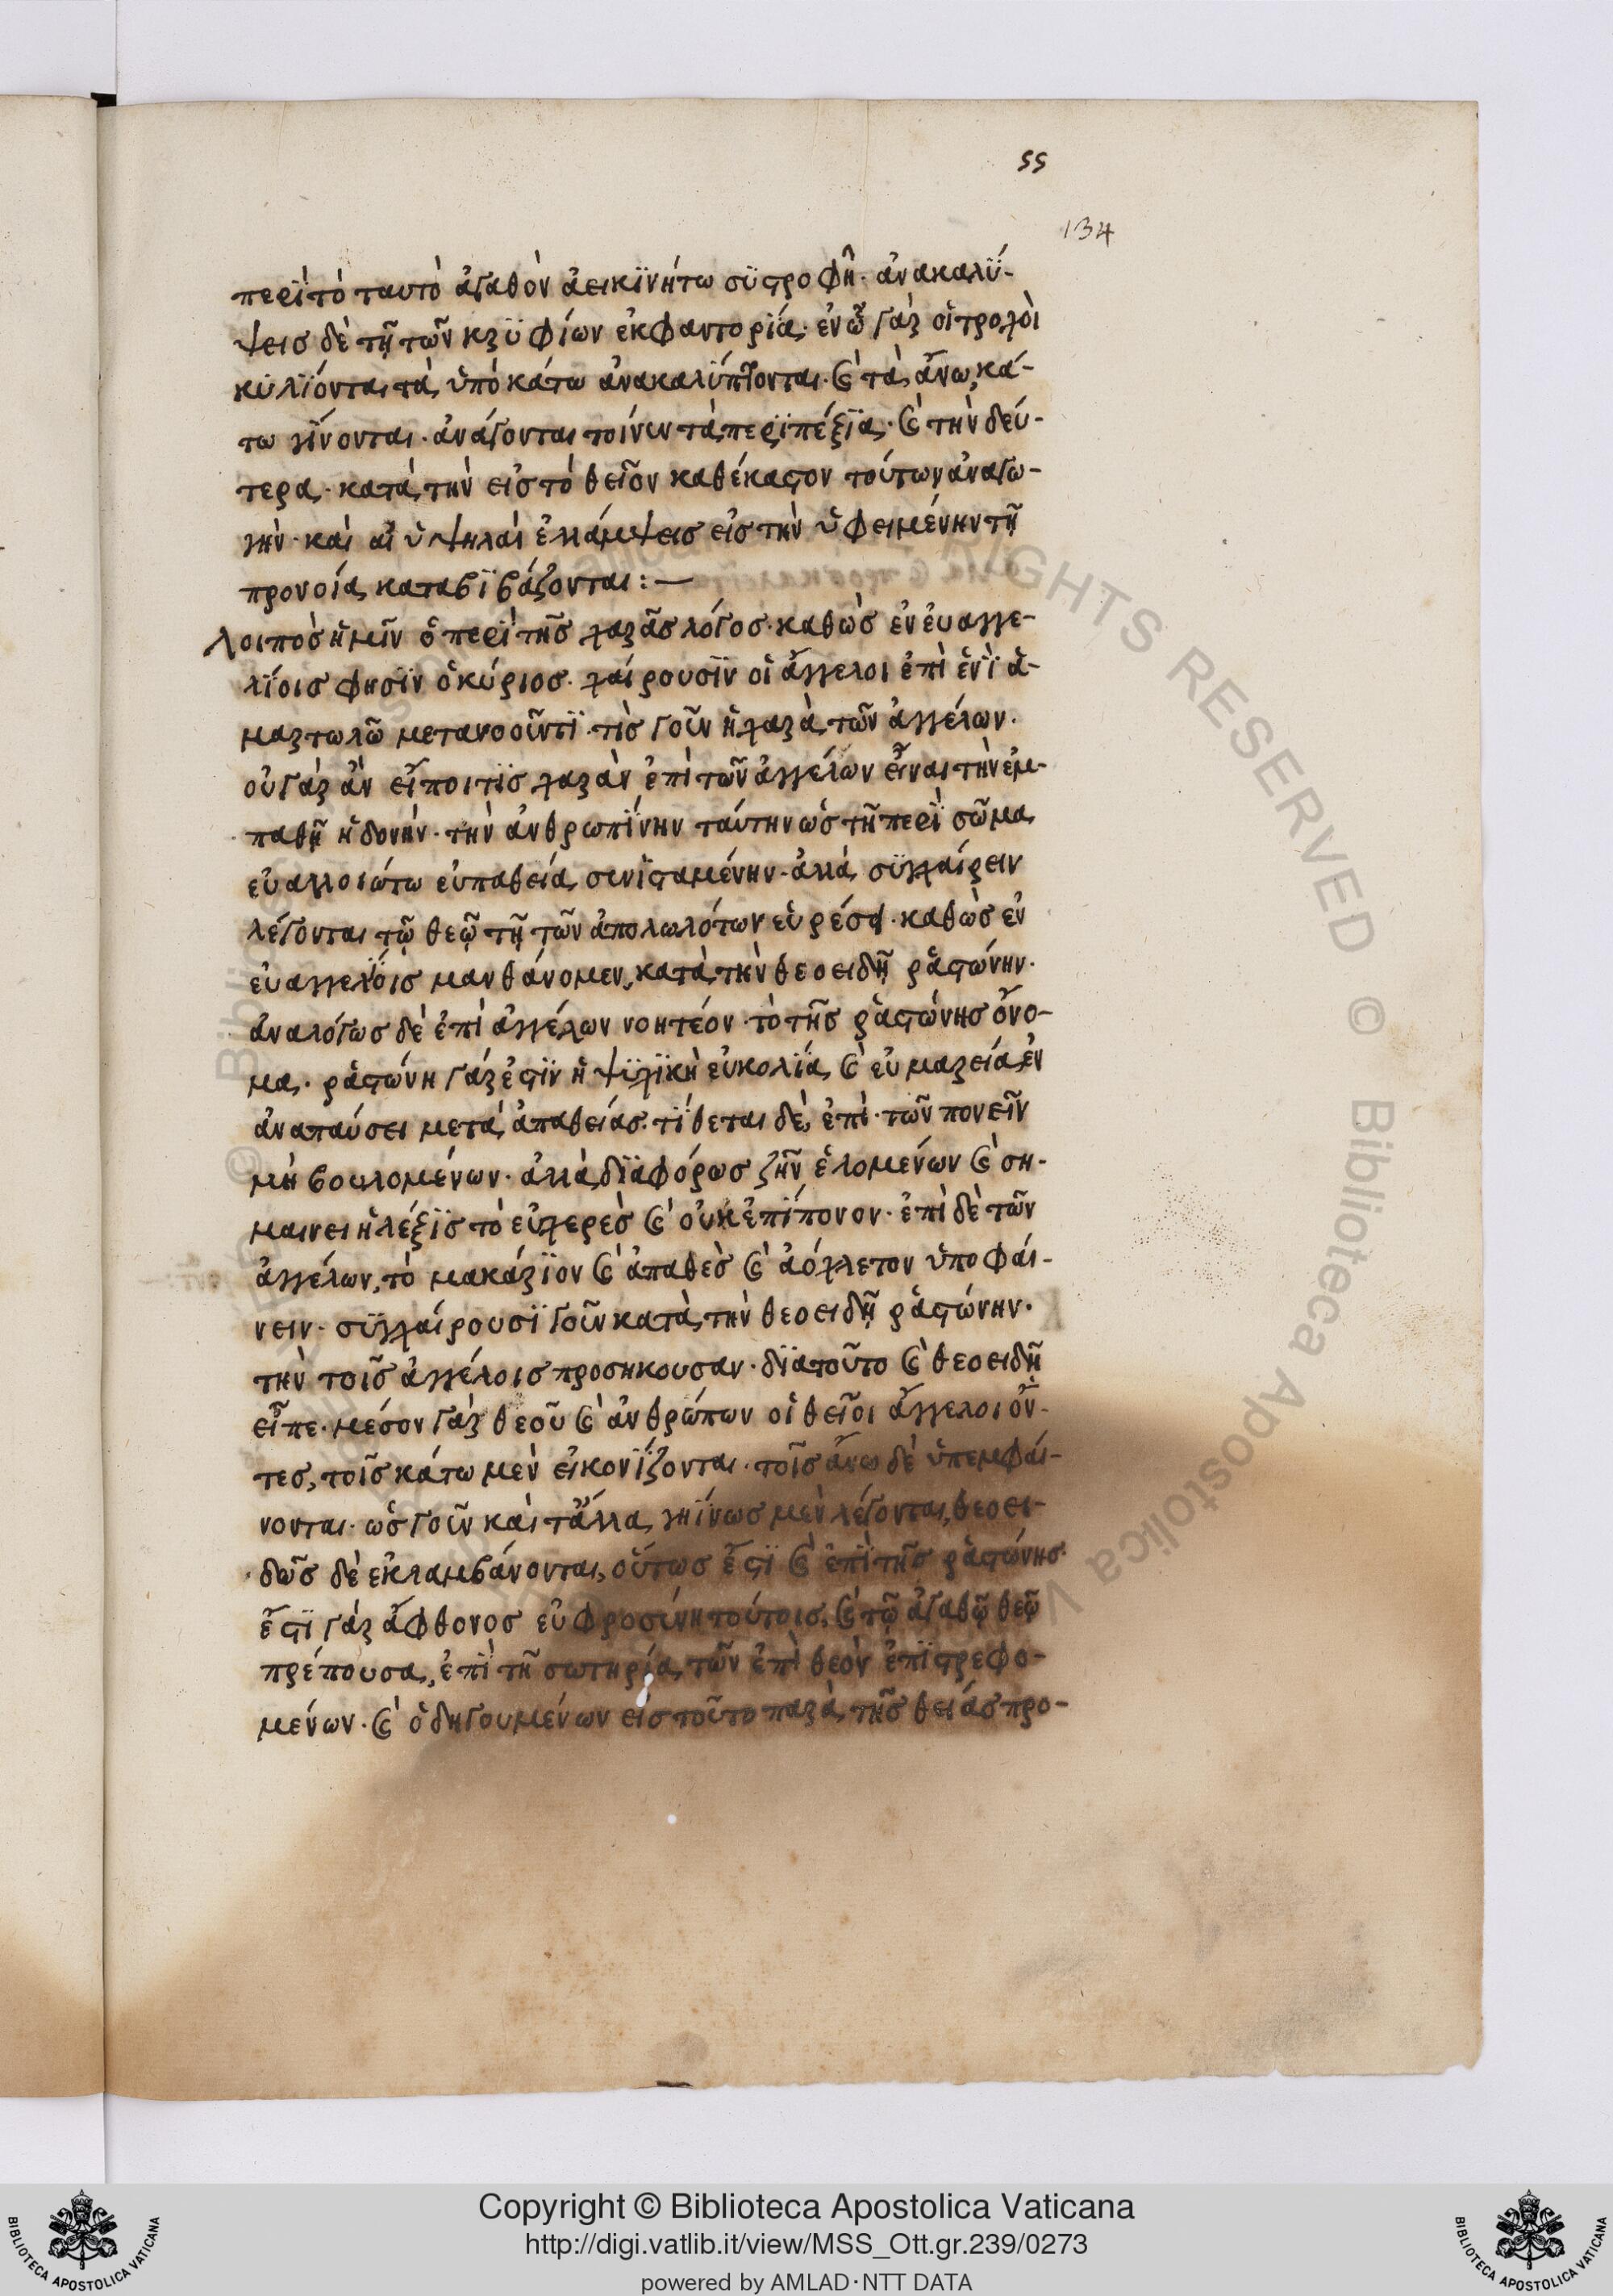 ςς
134
περὶ τὸ ταυτὸ ἀγαθὸν ἀεικϊνήτω σϋστροφῆ· ἀνακαλϋ-
ψεισ δὲ τῆ τῶν κρϋφίων ἐκφαντορϊα· ἐν ὧ γὰρ οἱ τροχοὶ
κϋλϊονται τὰ ὑπὸ κάτω ἀνακαλϋπτονται· καὶ τὰ ἄνω, κά-
τω γϊνονται· ἀνάγονται τοίνυν τὰ περϊπέξϊα· καὶ τὴν δεύ-
τερα· κατὰ τὴν εἰσ τὸ θεῖον καθέκαστον τούτων ἀναγω-
γὴν· καὶ αἱ ὑψηλαὶ ἐλλάμψεισ εἰσ τὴν ὑφειμένην τῆ
προνοία καταβϊβάζονται:—
λοιπὸσ ἡμῖν ὁ περὶ τῆσ χαρᾶσ λόγοσ· καθὼσ ἐν ἐυαγγε-
λϊοισ φησϊν ὁ κύριοσ· χαίρουσϊν οἱ ἄγγελοι ἐπὶ ἑνϊ ἁ-
μαρτωλῶ μετανοοῦντϊ· τὶσ γοῦν ἡ χαρὰ τῶν ἀγγέλων·
οὐ γὰρ ἂν εἴποι τϊσ χαρὰν ἐπὶ τῶν ἀγγέλων εἶναι τὴν ἐμ-
παθῆ ἡδονήν· τὴν ἀνθρωπϊνην ταύτην ὡσ τῆ περϊ σῶμα
εὐαλλοιώτω εὐπαθεία συνϊσταμένην· ἀλλὰ σϋγχαίρειν
λέγονται τῷ θεῷ τῇ τῶν ἀπολωλότων εὑρέσει· καθὼσ ἐν
εὐαγγελϊοισ μανθάνομεν, κατὰ τὴν θεοειδῆ ῥᾳστώνην·
ἀναλόγωσ δὲ ἐπὶ ἀγγέλων νοητέον· τὸ τῆσ ῥᾳστώνησ ὄνο-
μα· ῥᾳστώνη γάρ ἐστϊν ἡ ψϋχϊκὴ εὐκολϊα καὶ εὐμαρεία ἐν
ἀναπαύσει μετὰ ἀπαθείασ· τϊθεται δὲ ἐπὶ· τῶν πονεῖν
μὴ βουλομένων· ἀλλὰ δϊαφόρωσ ζῆν ἑλομένων καὶ ση-
μαινει ἡ λέξϊσ τὸ εὐχερὲσ καὶ οὐκ ἐπϊπονον· ἐπὶ δὲ τῶν
ἀγγέλων, τὸ μακάρϊον καὶ ἀπαθὲσ καὶ ἀόχλετον ὑποφάι-
νειν· σϋγχαίρουσϊ γοῦν κατὰ τὴν θεοειδῆ ῥᾳστώνην·
τὴν τοῖσ ἀγγέλοισ προσηκουσαν· δϊατοῦτο καὶ θεοειδῆ
εἶπε· μέσον γὰρ θεοῦ καὶ ἀνθρώπων οἱ θεῖοι ἄγγελοι ὄν-
τεσ, τοῖσ κάτω μὲν εἰκονϊζονται· τοῖσ ἄνω δὲ ὑπεμφάι-
νονται· ὡσ γοῦν καὶ τἄλλα γηϊνωσ μὲν λέγονται, θεοει-
δῶσ δὲ ἐκλαμβάνονται, οὕτωσ ἔστϊ καὶ ἐπϊ τῆσ ῥᾳστώνησ·
ἔστϊ γὰρ ἄφθονοσ εὐφροσύνη τούτοισ, καὶ τῷ ἀγαθῷ θεῷ
πρέπουσα, ἐπὶ τῆ σωτηρία τῶν ἐπὶ θεὸν ἐπϊστρεφο-
μένων· καὶ ὁδηγουμένων εἰσ τοῦτο παρὰ τῆσ θείασ προ-
Copyright © Biblioteca Apostolica Vaticana
http://digi.vatlib.it/view/MSS_Ott.gr.239/0273
powered by AMLAD·NTT DATA